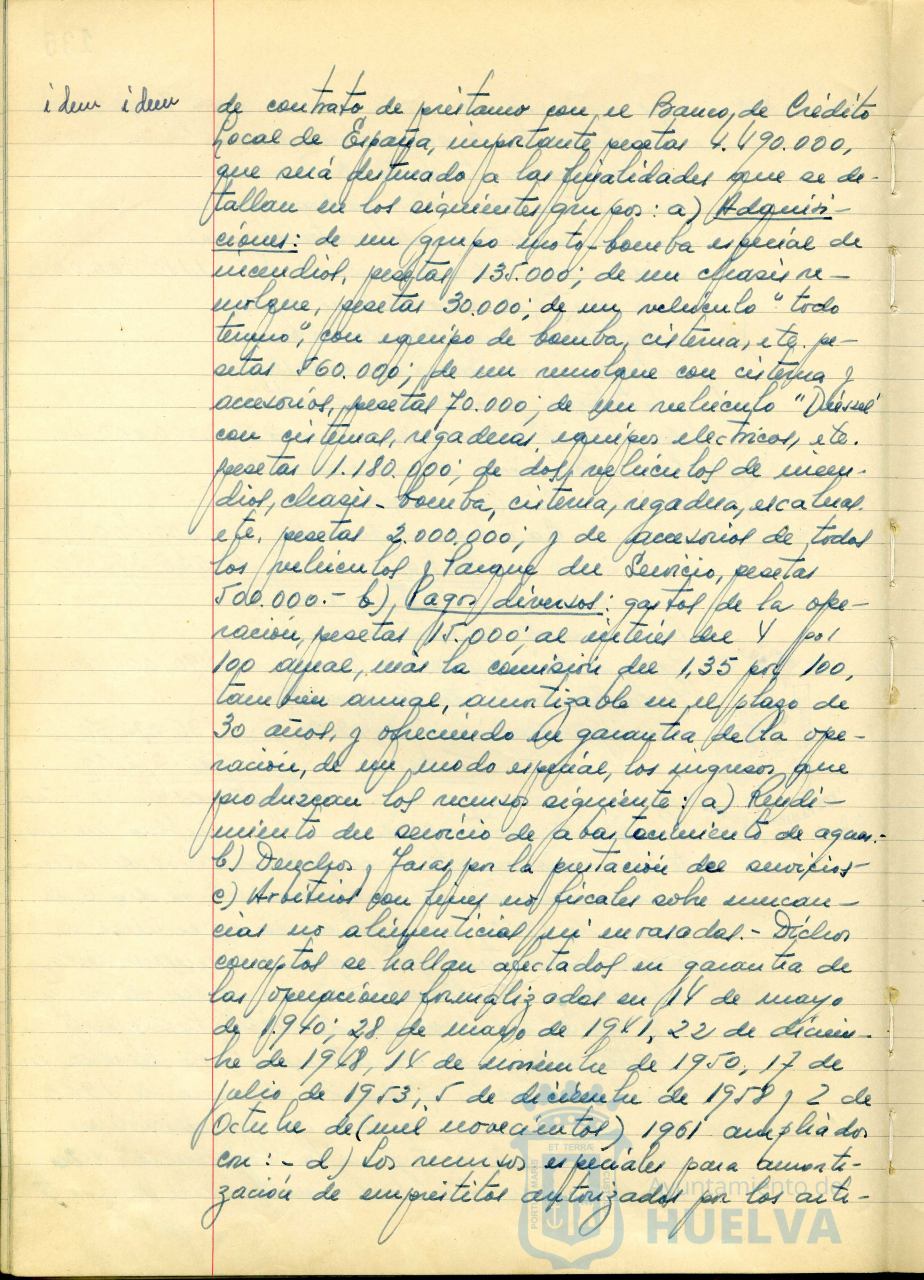 idem idem
de contrato, de préstamo con el Banco, de Crédito
Local de España, importante pesetas 4.490.000,
que será destinado a las finalidades que se de-
tallan en los siguientes grupos: a) Adquisi-
ciones: de un grupo moto-bomba especial de
incendios, pesetas 135.000; de un chasis re-
molque, pesetas 30.000; de un vehículo "todo
terreno", con equipo de bomba, cisterna, etc. pe-
setas 560.000; de un remolque con cisterna y
accesorios, pesetas 70.000; de un vehículo "Diessel"
con cisternas, regaderas, equipos electricos, etc.
pesetas 1.180.000; de dos vehículos de incen-
dios, chasis-bomba, cisterna, regadera, escaleras.
etc. pesetas 2.000.000; y de accesorios de todos
los vehículos y Parque del Servicio, pesetas
500.000.- b) Pagos diversos: gastos de la ope-
ración, pesetas 15.000; al interés del 4 por
100 anual, más la comisión del 1,35 por 100,
también annual, amortizable en el plazo de
30 años, y ofreciendo en garantía de la ope-
ración, de un modo especial, los ingresos que
produzcan los recursos siguiente: a) Rendi-
miento del servicio de abastecimiento de aguas.-
b) Derechos y Tasas por la prestación de servicios-
c) Arbitrios con fines no fiscales sobre mercan-
cías no alimenticias ni envasadas.- Dichos
conceptos se hallan afectados en garantía de
las operaciones formalizadas en 14 de mayo
de 1.940; 28 de mayo de 1941, 22 de diciem-
bre de 1948, 14 de noviembre de 1950, 17 de
julio de 1953, 5 de diciembre de 1958 y 2 de
Octubre de (mil novecientos) 1961 ampliados
con:- d) Los recursos especiales para amorti-
zación de empréstitos autorizados por los artí-
Ayuntamiento de
HUELVA